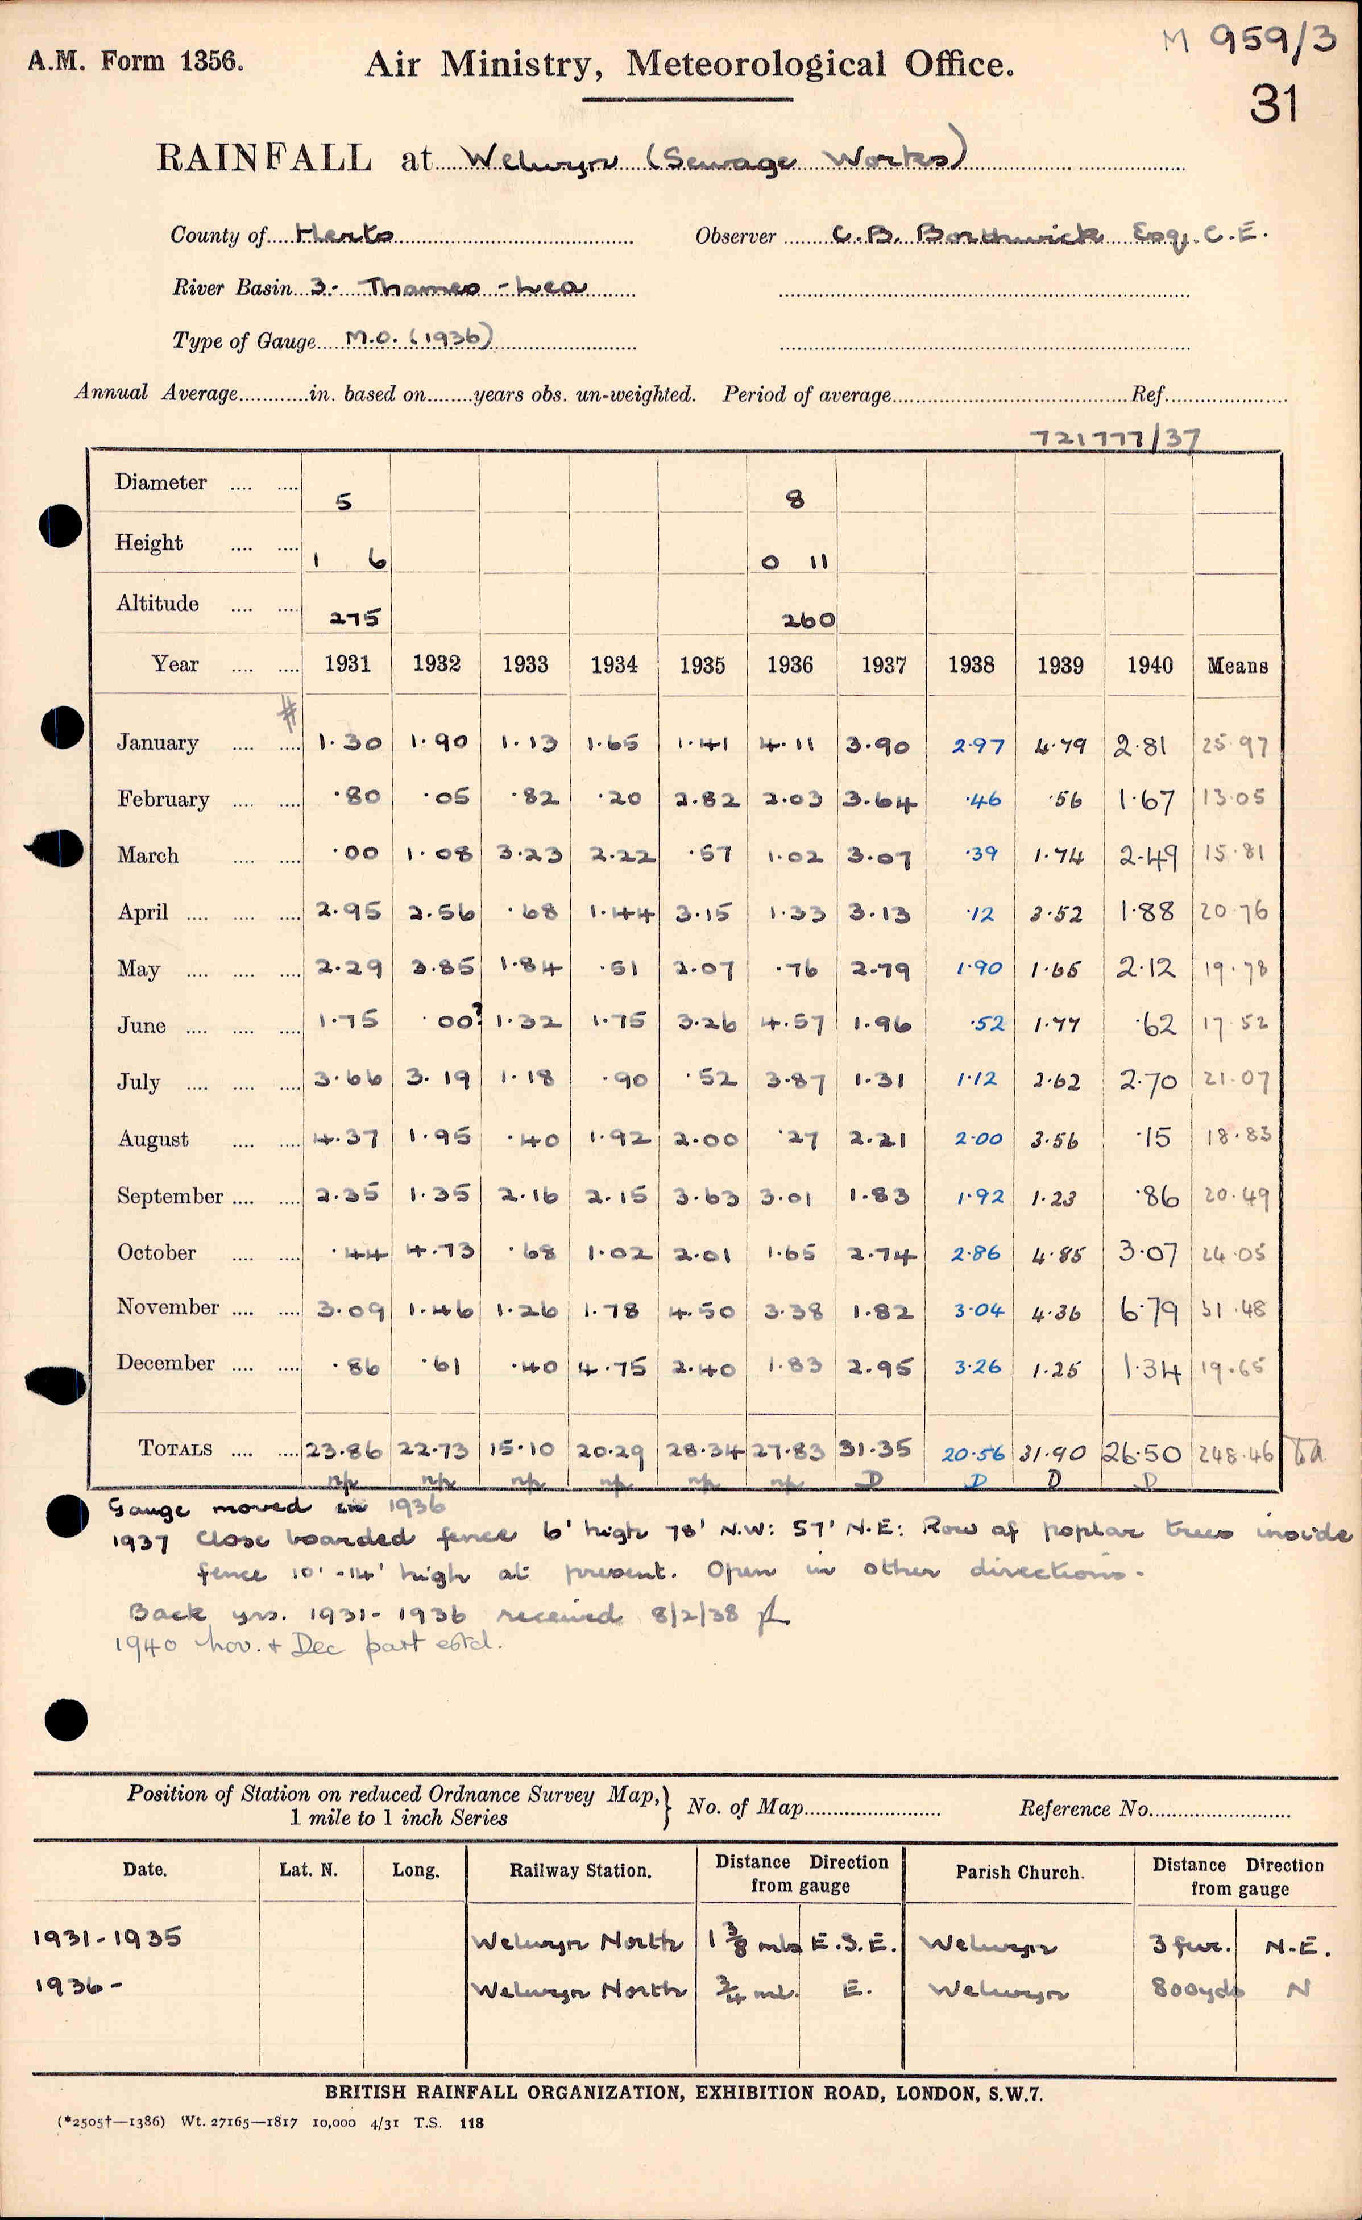 M 959/3
A.M. Form 1356.
Air Ministry, Meteorological Office.
31
RAINFALL at Welwyn (Sewage Works)
County of Herts Observer C.B. Borthwick Esq. C.E.
River Basin 3 - Thames - Lea
Type of Gauge M.O. (1936)
Annual Average in. based on years obs. un-weighted. Period of average Ref.
721777/37
Diameter 5 8
Height 1 6 0 11
Altitude 275 260
Year 1931 1932 1933 1934 1935 1936 1937 1938 1939 1940 Means
#
January 1.30 1.90 1.13 1.65 1.41 4.11 3.90 2.97 4.79 2.81 25.97
February .80 .05 .82 .20 2.82 2.03 3.64 .46 .56 1.67 13.05
March .00 1.08 3.23 2.22 .57 1.02 3.07 .39 1.74 2.49 15.81
April 2.95 2.56 .68 1.44 3.15 1.33 3.13 .12 3.52 1.88 20.76
May 2.29 3.85 1.84 .51 2.07 .76 2.79 1.90 1.65 2.12 19.78
June 1.75 .00? 1.32 1.75 3.26 4.57 1.96 .52 1.77 .62 17.52
July 3.66 3.19 1.18 .90 .52 3.87 1.31 1.12 2.62 2.70 21.07
August 4.37 1.95 .40 1.92 2.00 .27 2.21 2.00 3.56 .15 18.83
September 2.35 1.35 2.16 2.15 3.63 3.01 1.83 1.92 1.23 .86 20.49
October .44 4.73 .68 1.02 2.01 1.65 2.74 2.86 4.85 3.07 24.05
November 3.09 1.46 1.26 1.78 4.50 3.38 1.82 3.04 4.36 6.79 31.48
December .86 .61 .40 4.75 2.40 1.83 2.95 3.26 1.25 1.34 19.65
TOTALS 23.86 22.73 15.10 20.29 28.34 27.83 31.35 20.56 31.90 26.50 248.46
np np np np np np D D D D
Gauge moved in 1936
1937 Close boarded fence 6' high 78' N.W: 57' N.E: Row of poplar trees inside
fence 10'-14' high at present. Open in other directions.
Back yrs. 1931-1936 received 8/2/38
1940 Nov. + Dec part estd.
Position of Station on reduced Ordnance Survey Map, 1 mile to 1 inch Series } No. of Map Reference No.
Date. Lat. N. Long. Railway Station. Distance Direction from gauge Parish Church. Distance Direction from gauge
1931-1935 Welwyn North 1 3/8 mls E.S.E. Welwyn 3 fur. N.E.
1936- Welwyn North 3/4 ml. E. Welwyn 800yds N
BRITISH RAINFALL ORGANIZATION, EXHIBITION ROAD, LONDON, S.W.7.
(*2505†—1386) Wt. 27165—1817 10,000 4/31 T.S. 118